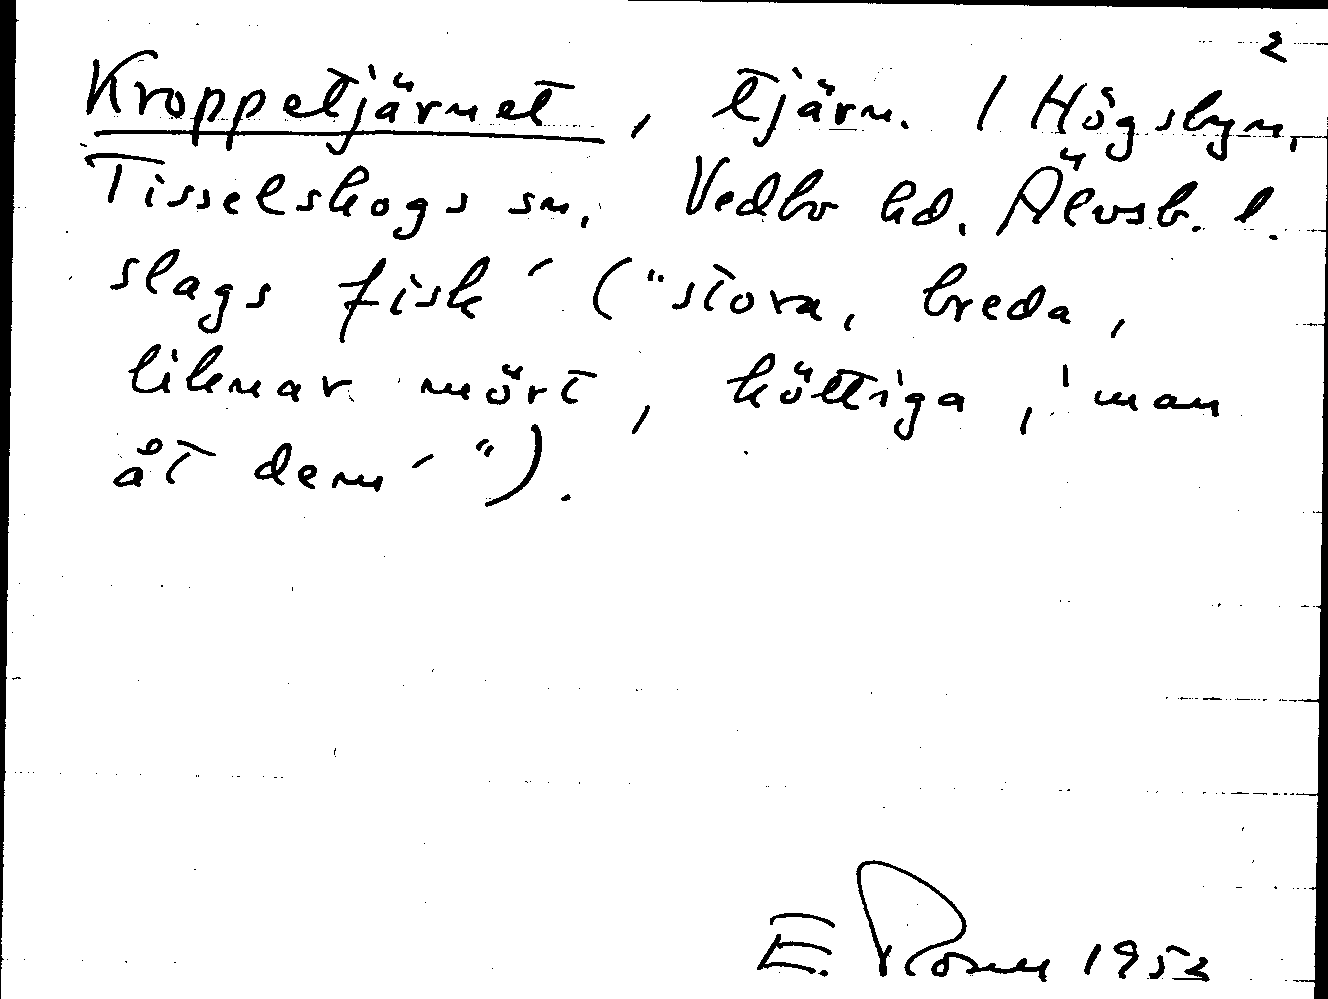 2
Kroppetjärnet, tjärn. / Högsbyn,
Tisselskogs sn. Vedbo hd. Älvsb. l.
slags fisk ́ ("stora, breda,
liknar mört, köttiga, 'man
åt dem ́").
E. Rosell 1952